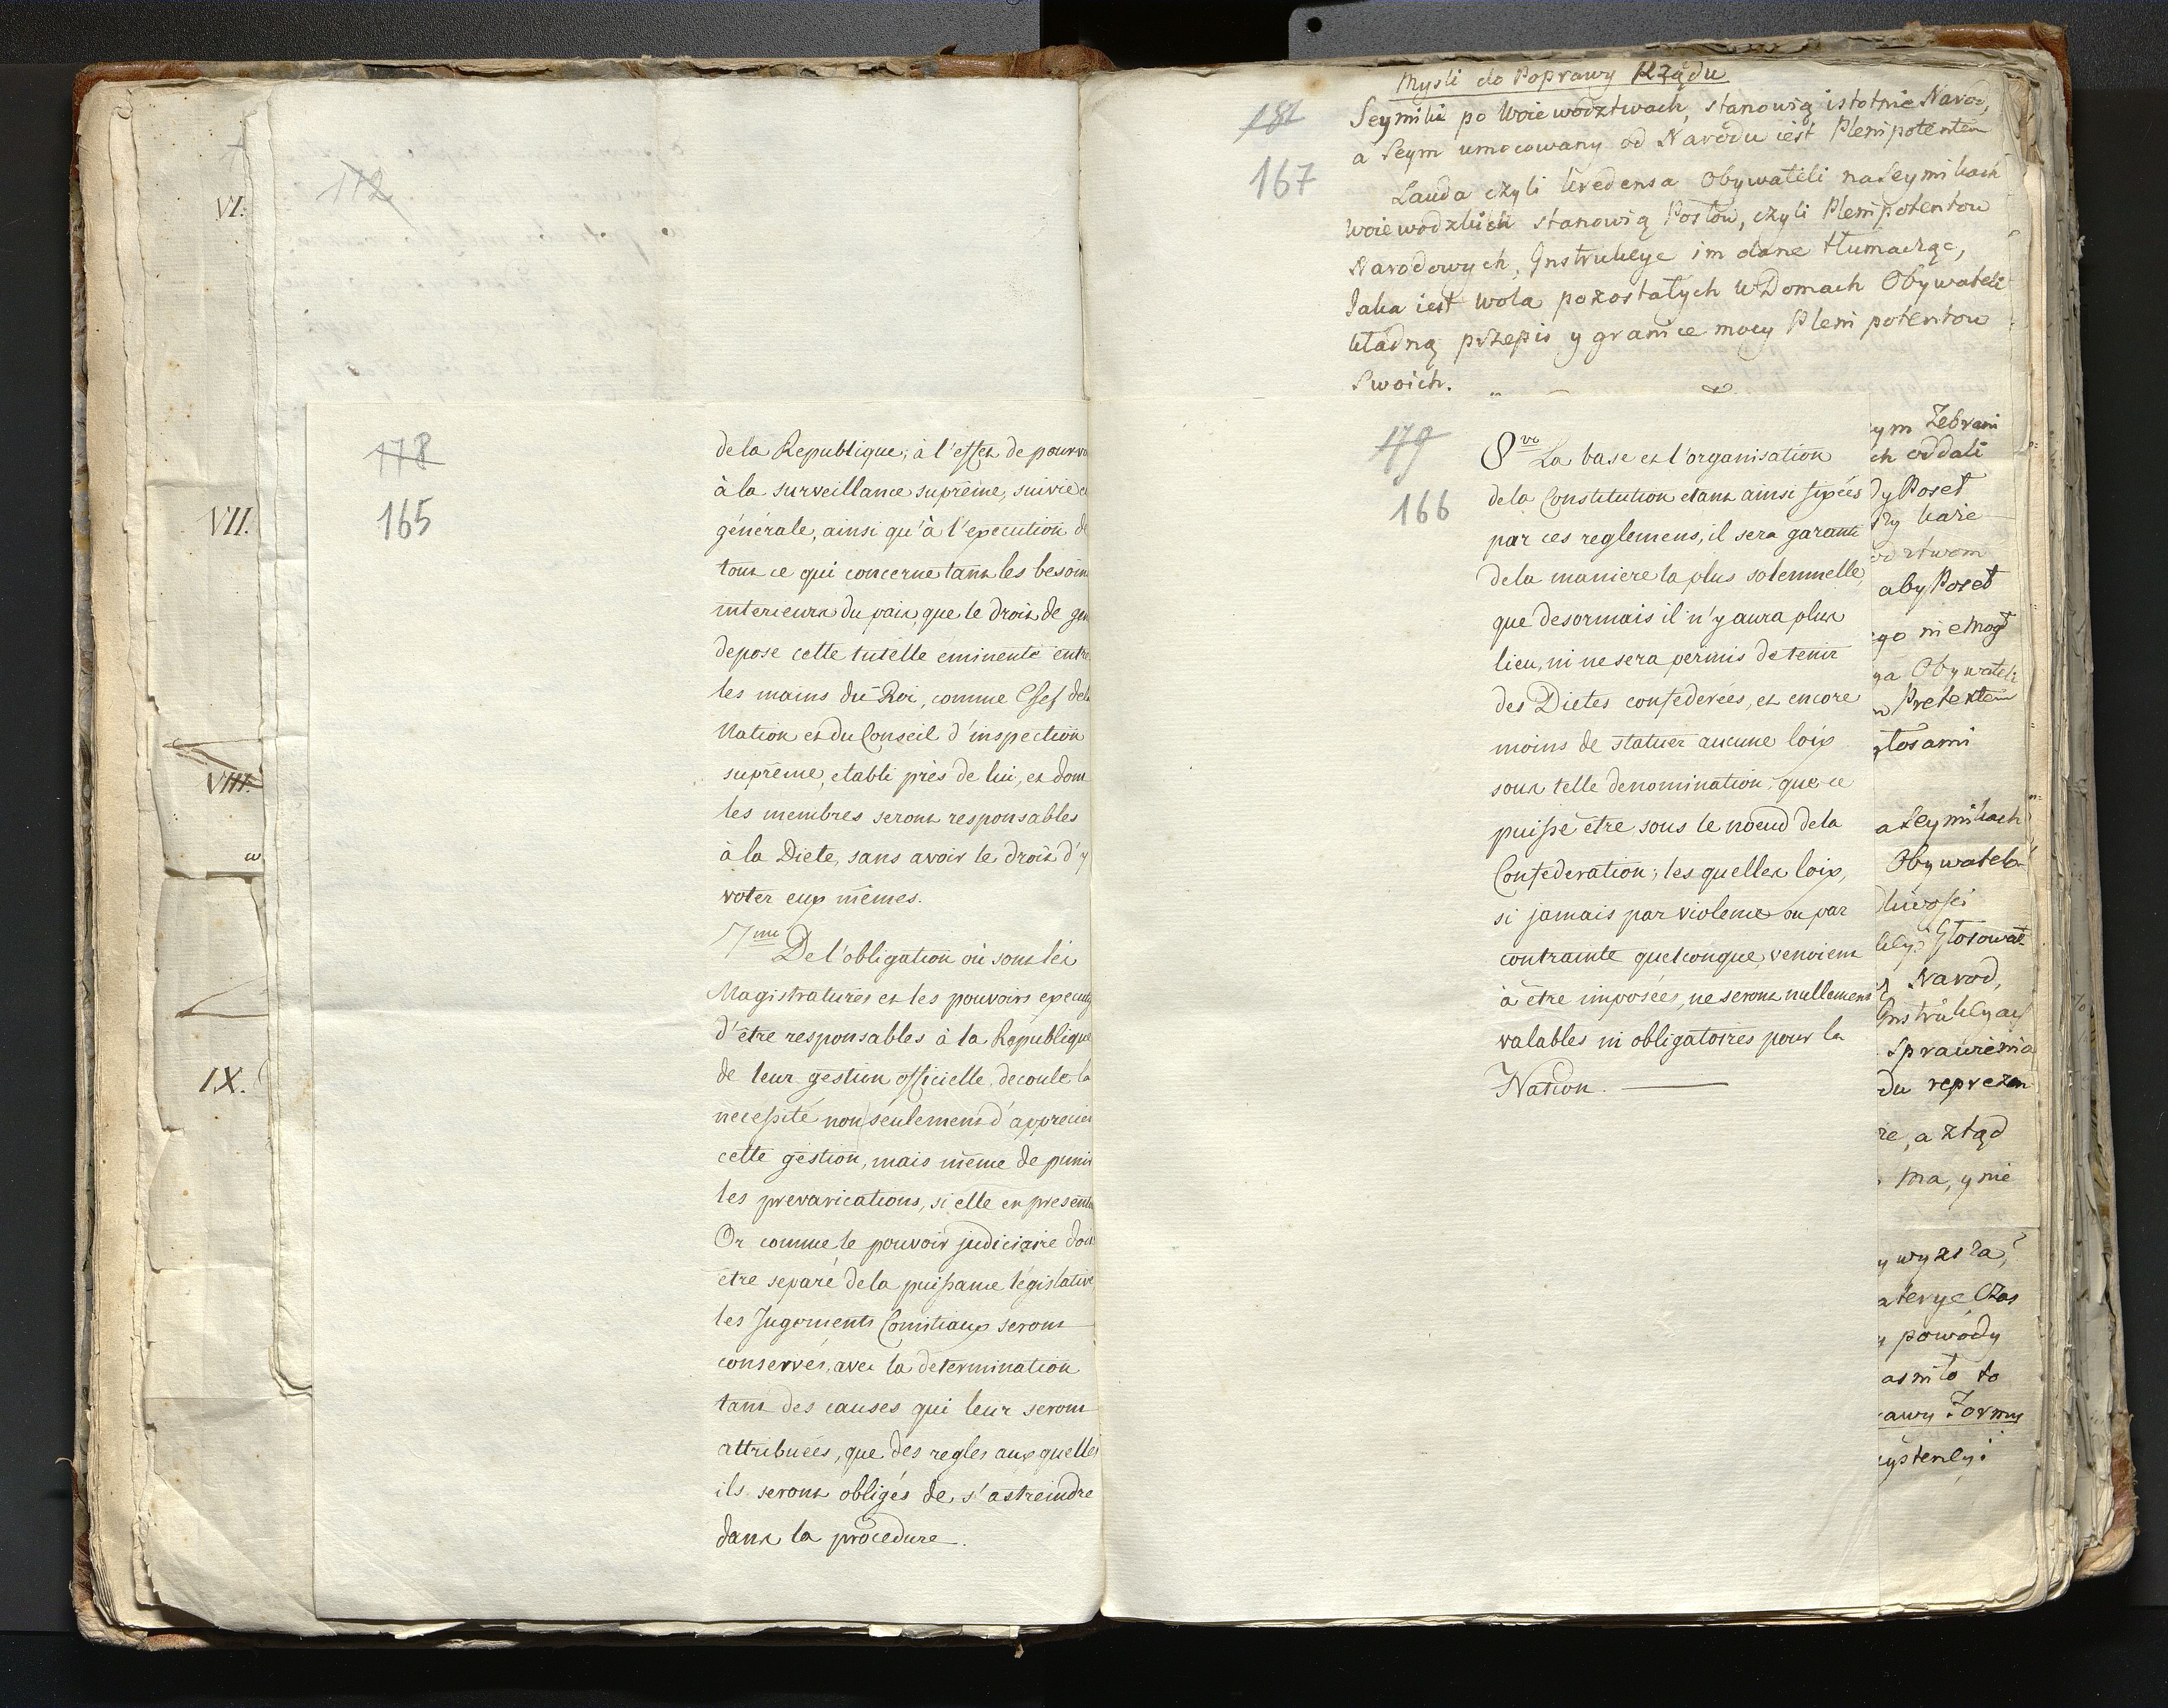 VI.
VII.
VIII.
w
IX.
112
178
165
de la Republique; à l'effet de pourv
à la surveillance suprême, suivie e
générale, ainsi qu'à l'execution d
tout ce qui concerne tant les besoins
interieurs du païs, que le droit de gen
depose cette tutelle eminente entre
les mains du Roi, comme Chef dela
Nation et du Conseil d'inspection
suprême, etabli près de lui, et dont
les membres seront responsables
à la Diete, sans avoir le droit d'y
voter eux mêmes.
7me De l'obligation où sont les
Magistratures et les pouvoirs executifs
d'être responsables à la Republique
de leur gestion officielle, decoule la
necessité non seulement d'apprecier
cette gestion, mais même de punir
les prevarications, si elle en presente
Or comme le pouvoir judiciaire doit
être separé dela puissance législative,
les Jugements Comitiaux seront
conservés, avec la determination
tant des causes qui leur seront
attribuées, que des regles auxquelles
ils seront obligés de s'astreindre
dans la procedure.
Mysli do Poprawy Rządu
181
167
Seymiki po Woiewodztwach, stanowią istotnie Narod,
a Seym umocowany od Narodu iest Plenipotentem
Lauda czyli kredensa Obywateli na Seymikach
Woiewodzkich stanowią Posłow, czyli Plenipotentow
Narodowych, Instrukcye im dane tłumacząc,
Jaka iest wola pozostałych w Domach Obywateli
kładną przepis y granice mocy Plenipotentow
Swoich.
179
166
8vo La base et l'organisation
dela Constitution etant ainsi fixées
par ces reglemens, il sera garanti
dela maniere la plus solemnelle,
que desormais il n'y aura plus
lieu, ni ne sera permis de tenir
des Dietes confederées, et encore
moins de statuer aucune loix
sous telle denomination, que ce
puisse être, sous le noeud dela
Confederation; les quelles loix,
si jamais par violence ou par
contrainte quelconque, venoient
à être imposées, ne seront nullement
valables ni obligatoires pour la
Nation.
ym Zebrani
ch oddali
dy Poseł
każe
odztwom
aby Poseł
go nie mogł
ya Obywateli
Pretextem
głosami
a Seymikach
Obywatel
dliwości
Głosował
Narod,
Instrukcyach
Sprawienia
du reprezen
re, a ztąd
ma, y nie
y wyzsza,
aterye Czas
y powody
asniło to
awy Formy
systencyi